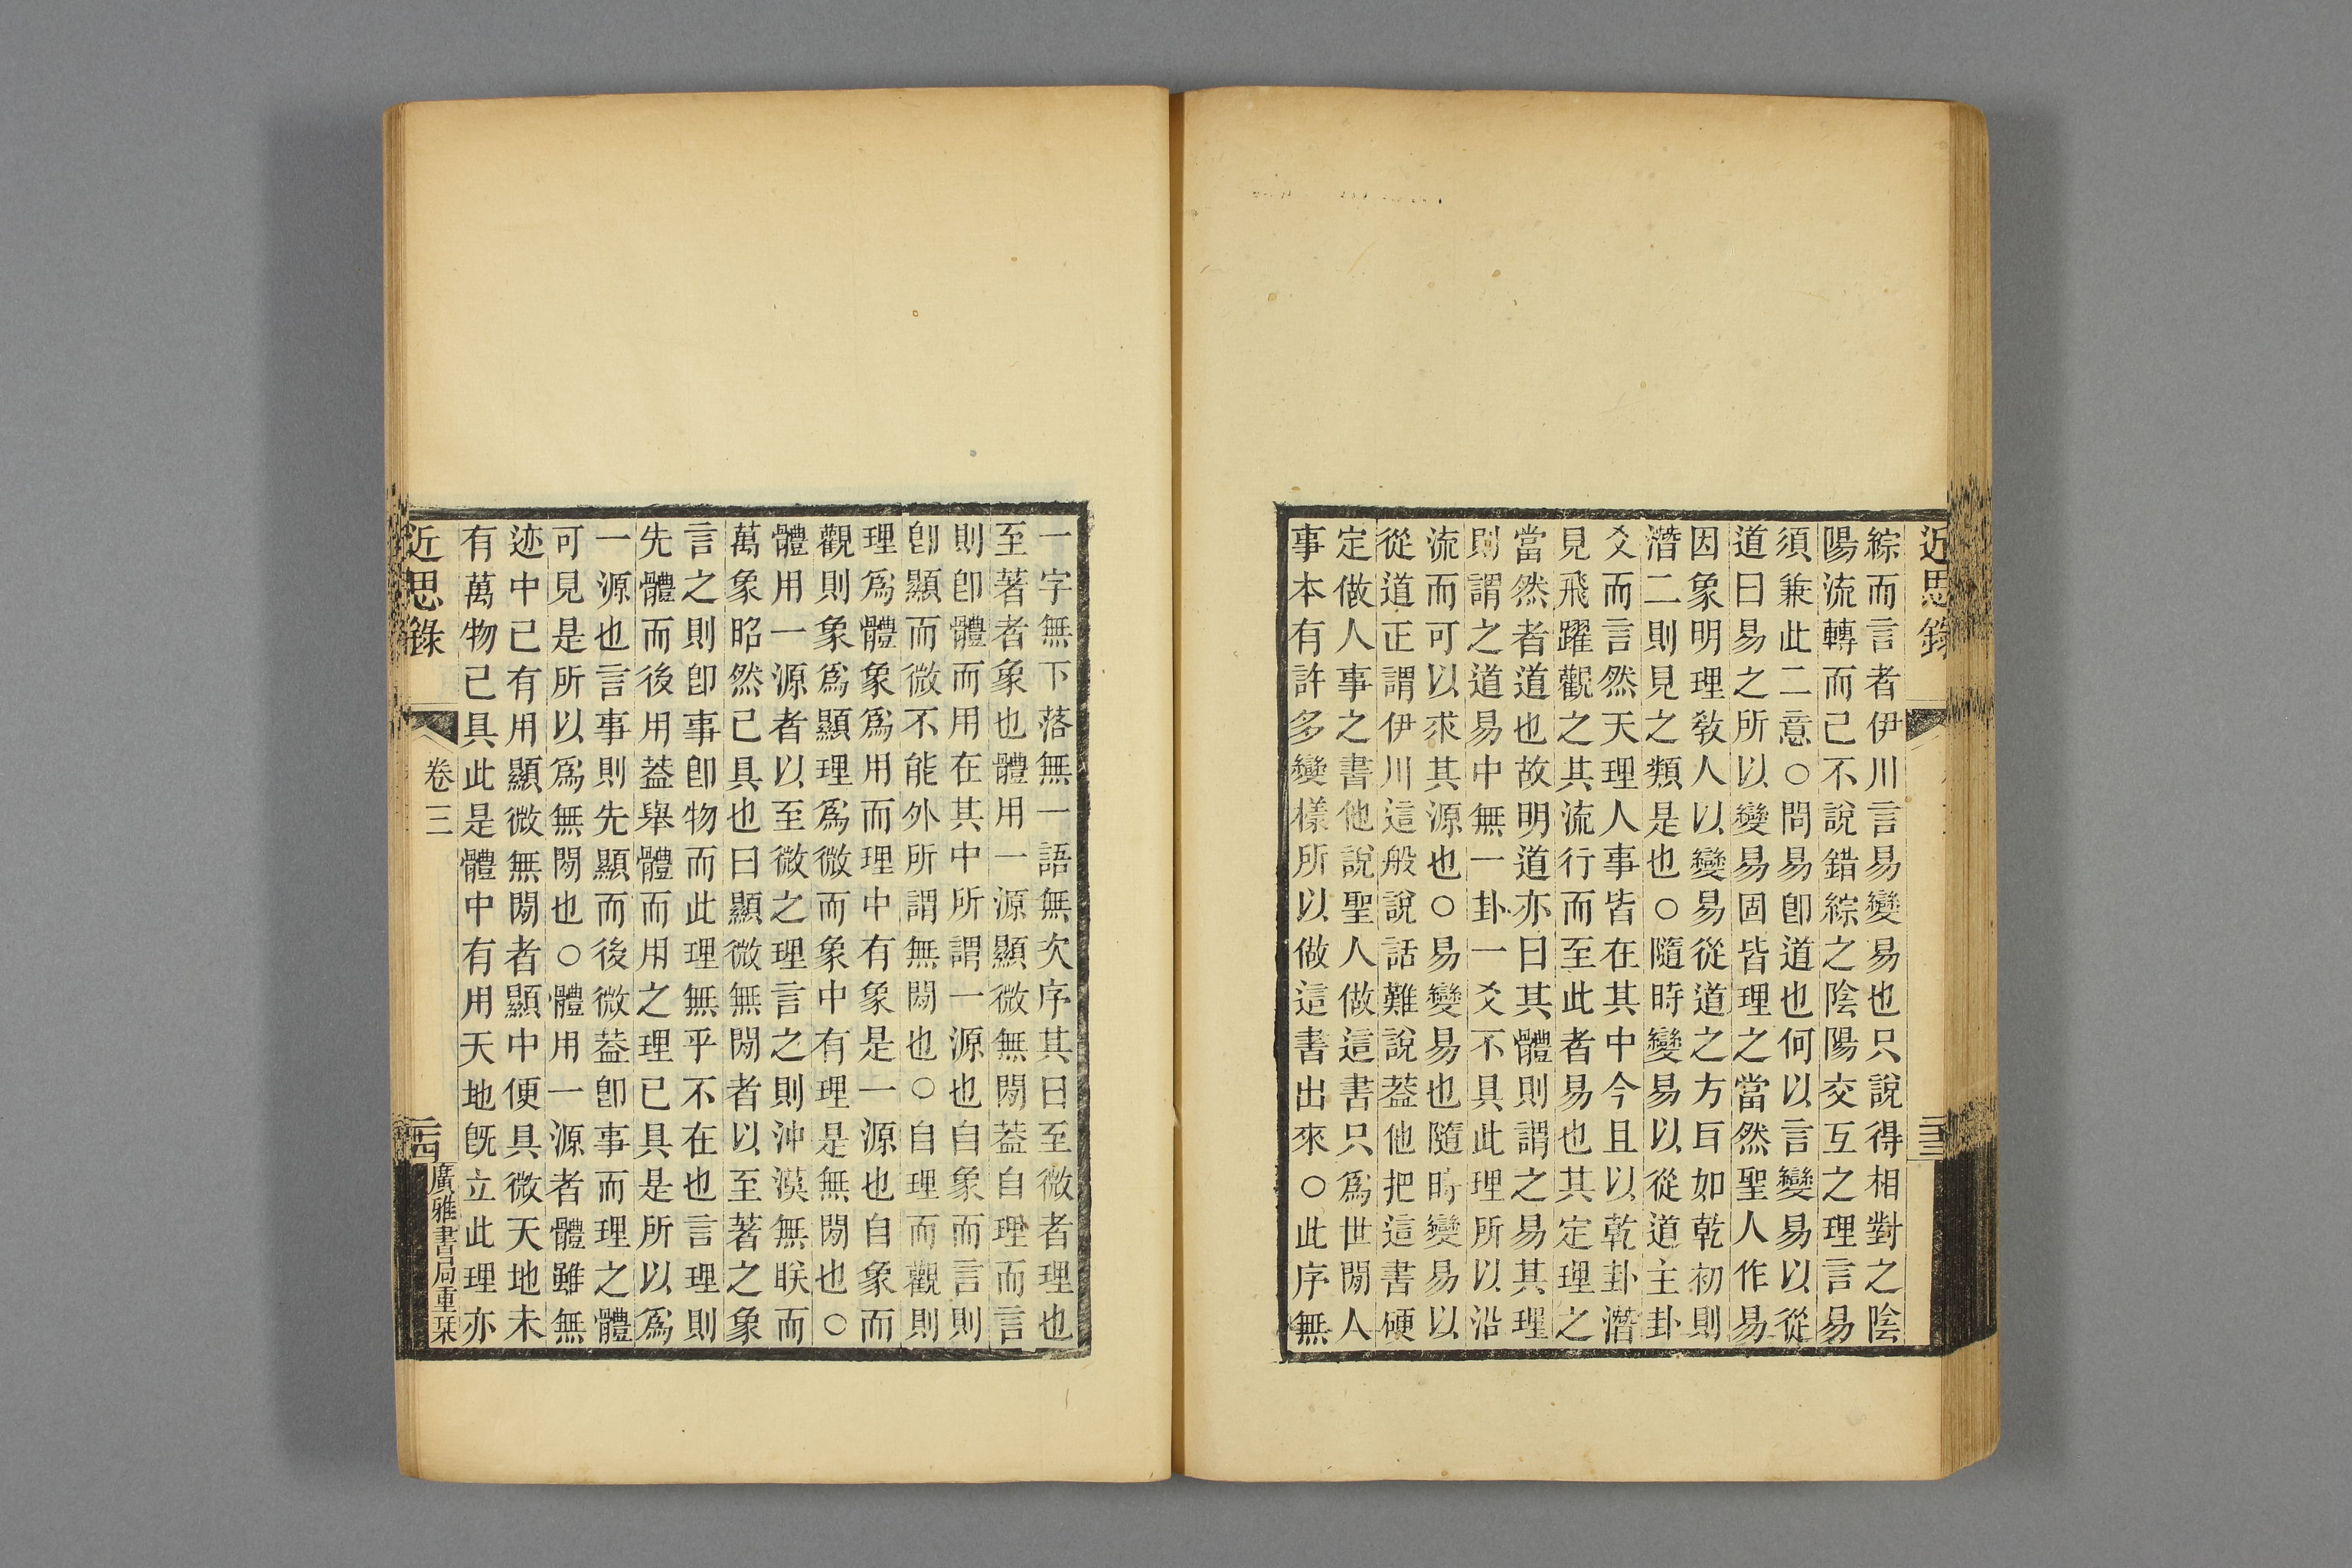 近思錄
綜而言者伊川言易變易也只說得相對之陰
陽流轉而已不說錯綜之陰陽交互之理言易
須兼此二意○問易卽道也何以言變易以從
道曰易之所以變易固皆理之當然聖人作易
因象明理敎人以變易從道之方耳如乾初則
潛二則見之類是也○隨時變易以從道主卦
爻而言然天理人事皆在其中今且以乾卦潛
見飛躍觀之其流行而至此者易也其定理之
當然者道也故明道亦曰其體則謂之易其理
則謂之道易中無一卦一爻不具此理所以沿
流而可以求其源也○易變易也隨時變易以
從道正謂伊川這般說話難說葢他把這書硬
定做人事之書他說聖人做這書只爲世閒人
事本有許多變樣所以做這書出來○此序無
一字無下落無一語無次序其曰至微者理也
至著者象也體用一源顯微無閒葢自理而言
則卽體而用在其中所謂一源也自象而言則
卽顯而微不能外所謂無閒也○自理而觀則
理爲體象爲用而理中有象是一源也自象而
觀則象爲顯理爲微而象中有理是無閒也○
體用一源者以至微之理言之則沖漠無眹而
萬象昭然已具也曰顯微無閒者以至著之象
言之則卽事卽物而此理無乎不在也言理則
先體而後用葢舉體而用之理已具是所以爲
一源也言事則先顯而後微葢卽事而理之體
可見是所以爲無閒也○體用一源者體雖無
迹中已有用顯微無閒者顯中便具微天地未
有萬物已具此是體中有用天地旣立此理亦
近思錄
卷三
二十四
廣雅書局重栞